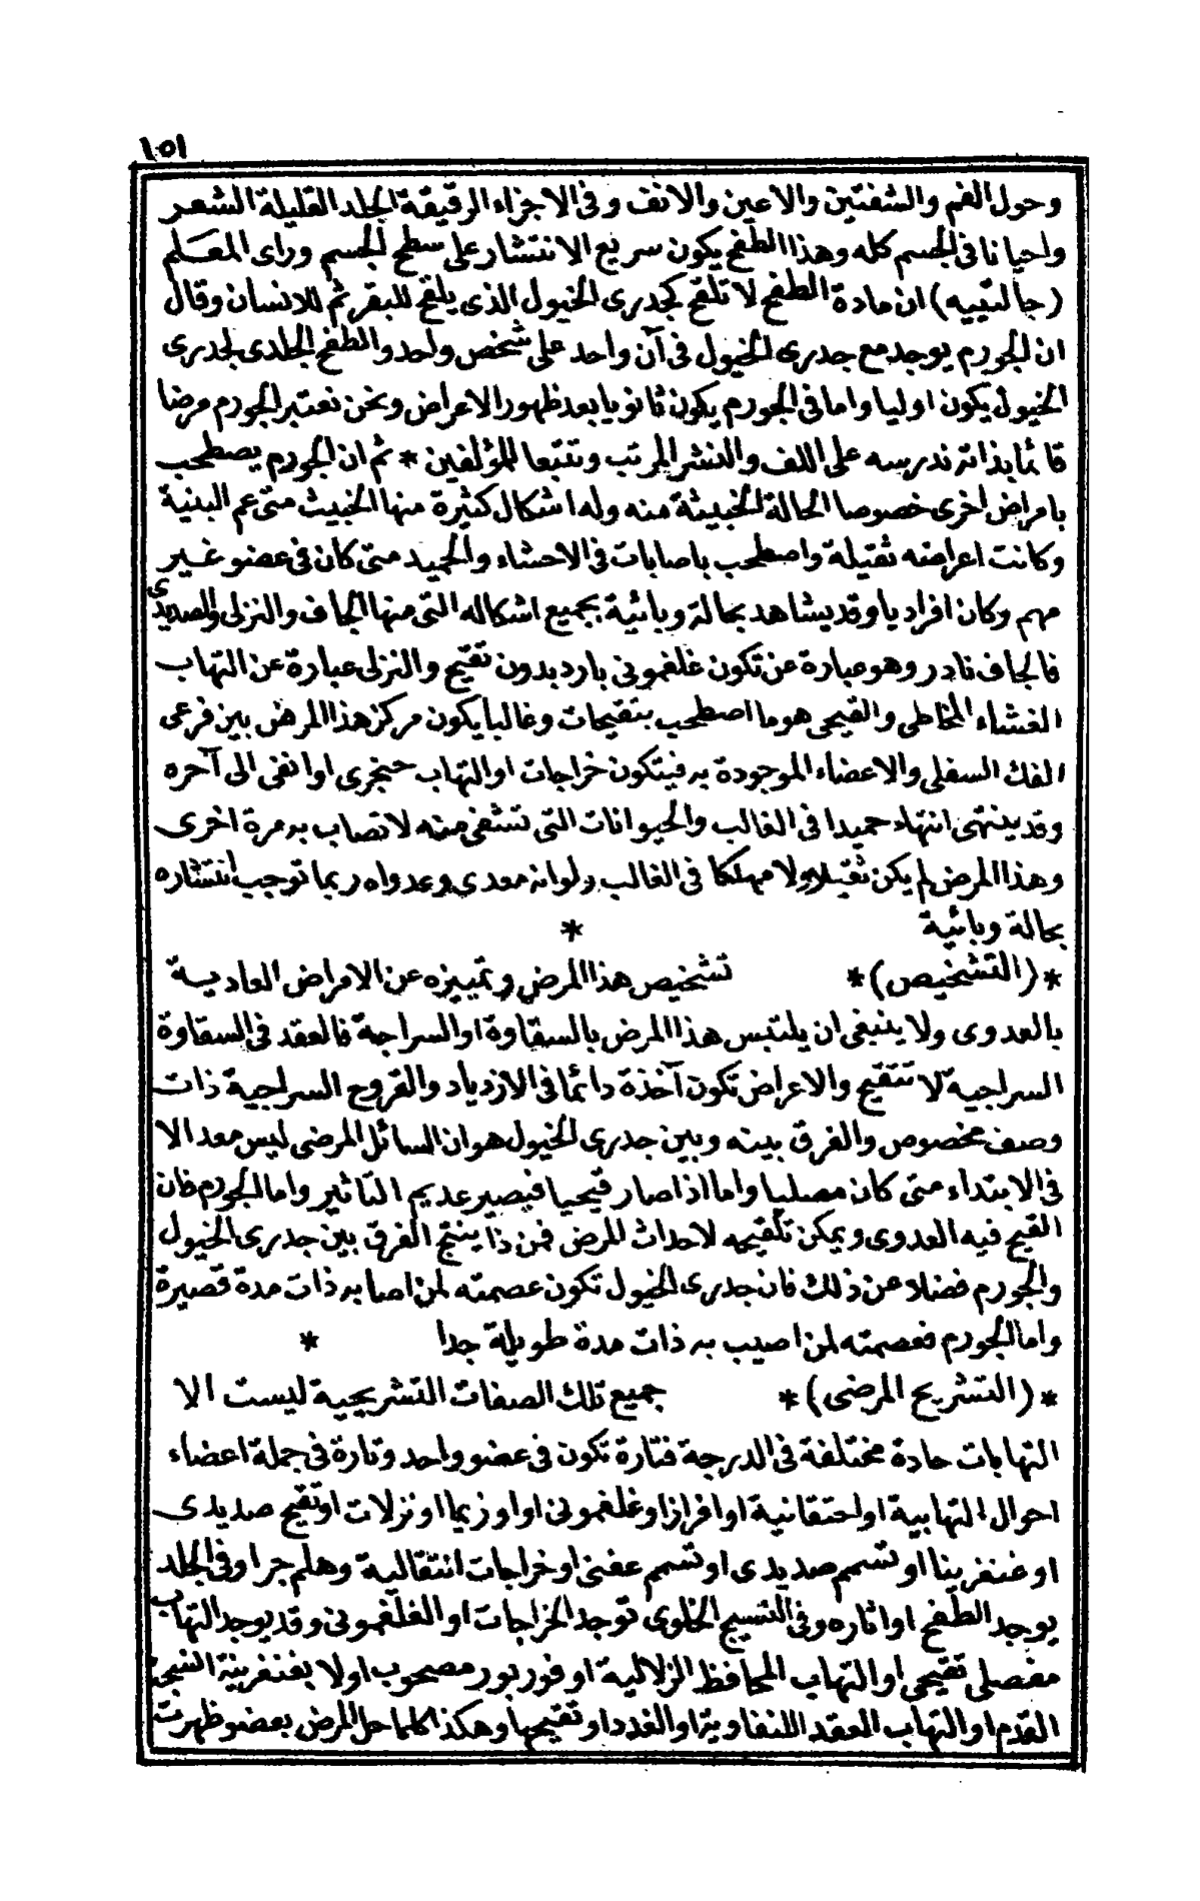 ١٥١
وحول الفم والشفتين والاعين والانف وفى الاجزاء الرقيقة الجلد القليلة الشعر
واحيانا فى الجسم كله وهذا الطفح يكون سريع الانتشار على سطح الجسم وراى المعلم
(جالتييه) ان مادة الطفح لا تلقح كجدرى الخيول الذى يلقح للبقر ثم للانسان وقال
ان الجورم يوجد مع جدرى الخيول فى آن واحد على شخص واحد والطفح الجلدى لجدرى
الخيول يكون اوليا واما فى الجورم يكون ثانويا بعد ظهور الاعراض ونحن نعتبر الجورم مرضا
قائما بذاته ندرسه على اللف والنشر المرتب وتتبعا للمؤلفين * ثم ان الجورم يصطحب
بامراض اخرى خصوصا الحالة الخبيثة منه وله اشكال كثيرة منها الخبيث متى عم البنية
وكانت اعراضه ثقيلة واصطحب باصابات فى الاحشاء والحميد متى كان فى عضو غير
مهم وكان افراديا وقد يشاهد بحالة وبائية بجميع اشكاله التى منها الجاف والنزلى والصديدى
فالجاف نادر وهو عبارة عن تكون غلغمونى بارد بدون تقيح والنزلى عبارة عن التهاب
الغشاء المخاطى والقيحى هو ما اصطحب بتقيحات وغالبا يكون مركز هذا المرض بين فرعى
الفك السفلى والاعضاء الموجودة به فيتكون خراجات او التهاب حنجرى او انفى الى آخره
وقد ينتهى انتهاء حميدا فى الغالب والحيوانات التى تشفى منه لا تصاب به مرة اخرى
وهذا المرض لم يكن ثقيلا ولا مهلكا فى الغالب ولو انه معدى وعدواه ربما توجب انتشاره
بحالة وبائية *
* (التشخيص) * تشخيص هذا المرض وتمييزه عن الامراض العادية
بالعدوى ولا ينبغى ان يلتبس هذا المرض بالسقاوة او السراجة فالعقد فى السقاوة
السراجية لا تتقيح والاعراض تكون آخذة دائما فى الازدياد والقروح السراجية ذات
وصف مخصوص والفرق بينه وبين جدرى الخيول هو ان السائل المرضى ليس معد الا
فى الابتداء متى كان مصليا واما اذا صار قيحيا فيصير عديم التاثير واما الجورم فان
القيح فيه العدوى ويمكن تلقيحه لاحداث المرض فمن ذا ينتج الفرق بين جدرى الخيول
والجورم فضلا عن ذلك فان جدرى الخيول تكون عصمته لمن اصابه ذات مدة قصيرة
واما الجورم فعصمته لمن اصيب به ذات مدة طويلة جدا *
* (التشريح المرضى) * جميع تلك الصفات التشريحية ليست الا
التهابات حادة مختلفة فى الدرجة فتارة تكون فى عضو واحد وتارة فى جملة اعضاء
احوال التهابية او احتقانية او افراز او غلغمونى او اوزيما او نزلات او تقيح صديدى
او غنغرينا او تسمم صديدى او تسمم عفنى او خراجات انتقالية وهلم جرا وفى الجلد
يوجد الطفح او اثاره وفى النسيج الخلوى توجد الخراجات او الغلغمونى وقد يوجد التهاب
مفصلى تقيحى او التهاب المحافظ الزلالية او فوربور مصحوب اولا بغنغرينة
القدم او التهاب العقد اللنفاوية او الغدد او تقيحها وهكذا كلما حل المرض بعضو ظهرت